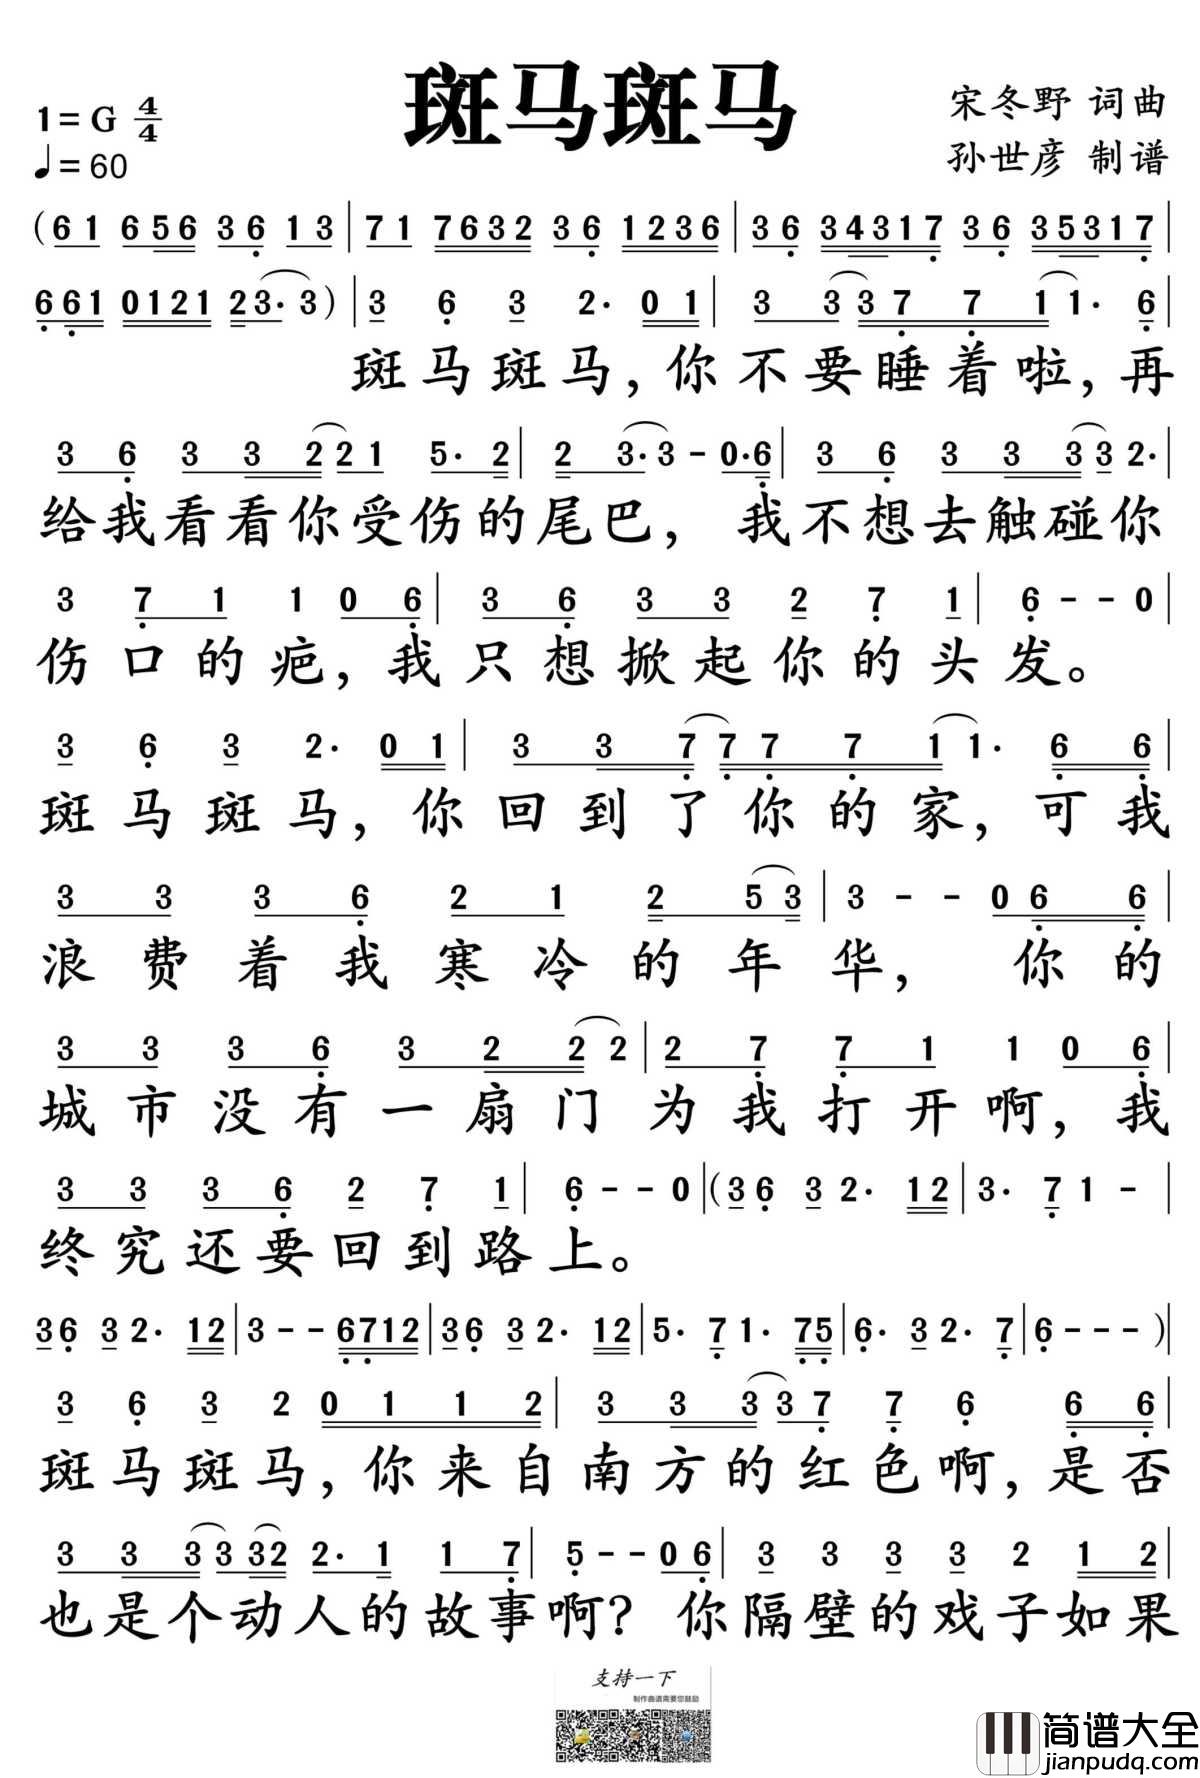 斑马斑马
1=G 4/4
♩=60
宋冬野 词曲
孙世彦 制谱
(61 656 36 13|71 7632 36 1236|36 34317 36 35317|
661 0121 23·3)|3 6 3 2· 01|3 3377 11· 6|
斑马斑马，你不要睡着啦，再
36 33221 5· 2|2 3·3-0·6|36 3333 2·|
给我看看你受伤的尾巴，我不想去触碰你
3 71 1 06|36 33 2 7 1|6--0|
伤口的疤，我只想掀起你的头发。
3 6 3 2· 01|3377771 1· 66|
斑马斑马，你回到了你的家，可我
33 36 21 253|3--066|
浪费着我寒冷的年华，你的
33 36 3222|27 71 1 06|
城市没有一扇门为我打开啊，我
33 36 2 7 1|6--0|(36 3 2· 12|3· 71-|
终究还要回到路上。
36 3 2· 12|3--6712|36 3 2· 12|5· 71· 75|6· 32· 7|6---)|
3 6 3 2 0112|333 37 7 6 66|
斑马斑马，你来自南方的红色啊，是否
333332 2· 1 17|5--06|3 3 3 3 2 12|
也是个动人的故事啊？你隔壁的戏子如果
支持一下
制作曲谱需要您鼓励
简谱大全
jianpudq.com